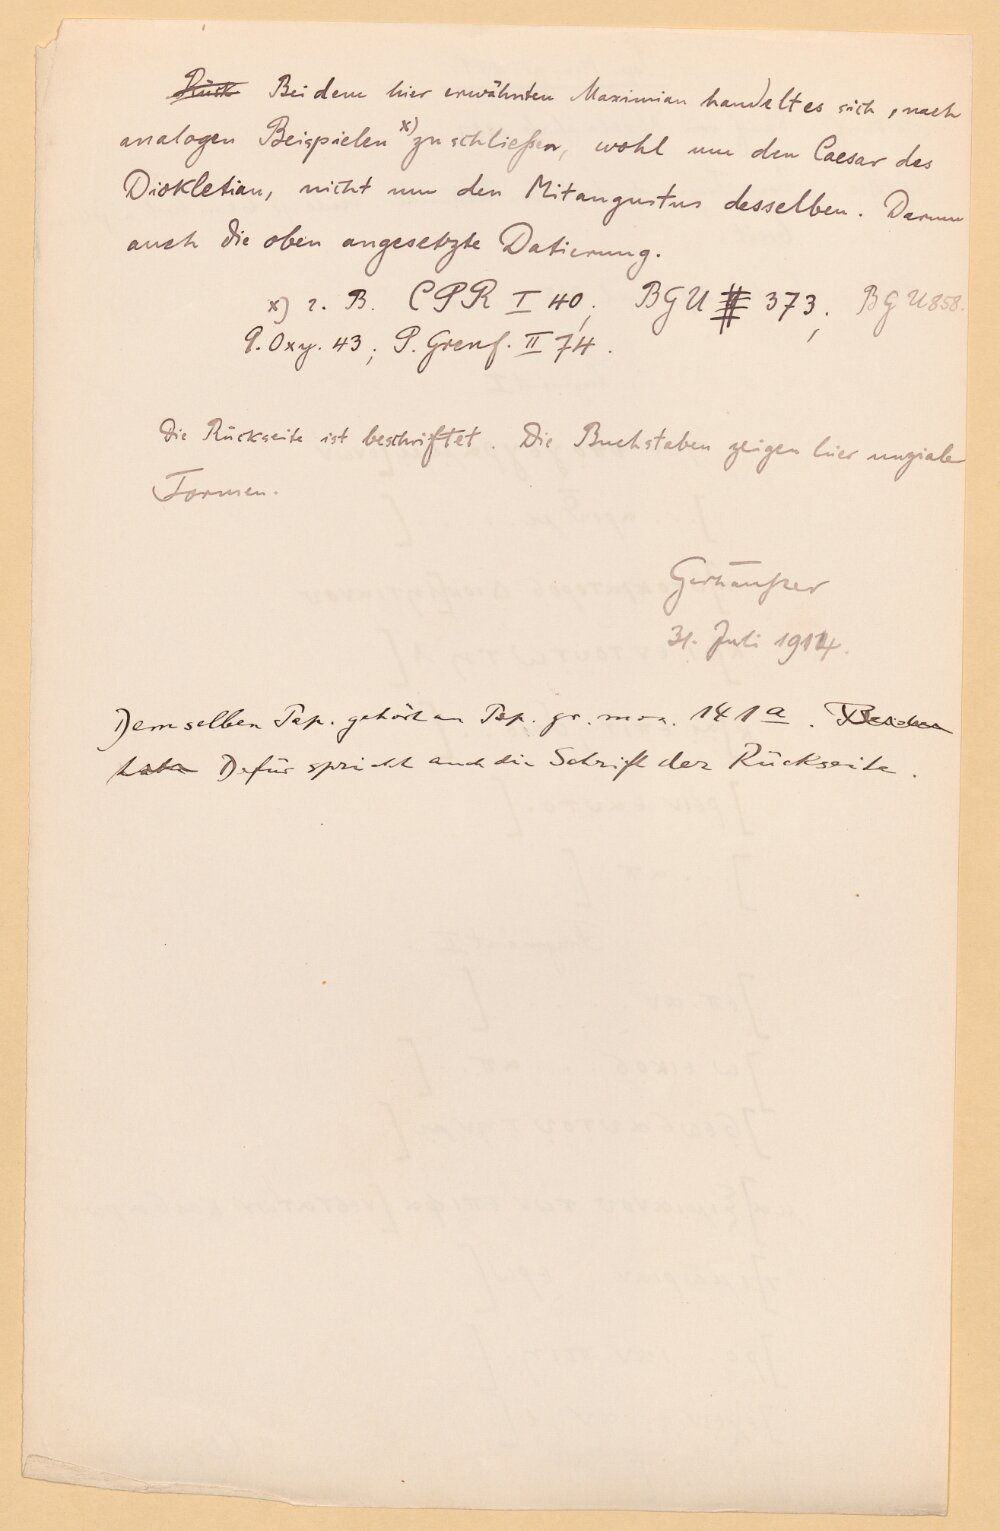 Rück Bei dem hier erwähnten Maximian handelt es sich, nach
analogen Beispielen x) zu schließen, wohl um den Caesar des
Diokletian, nicht um den Mitaugustus desselben. Darum
auch die oben angesetzte Datierung.
x) z. B. CPR I 40; BGU # 373; BGU 858.
P. Oxy. 43; P. Grenf. II 74.
Die Rückseite ist beschriftet. Die Buchstaben zeigen hier unziale
Formen.
Gerhäußer
31. Juli 1914.
Demselben Pap. gehört an Pap. gr. mon. 141a. Beiden
habe Dafür spricht auch die Schrift der Rückseite.